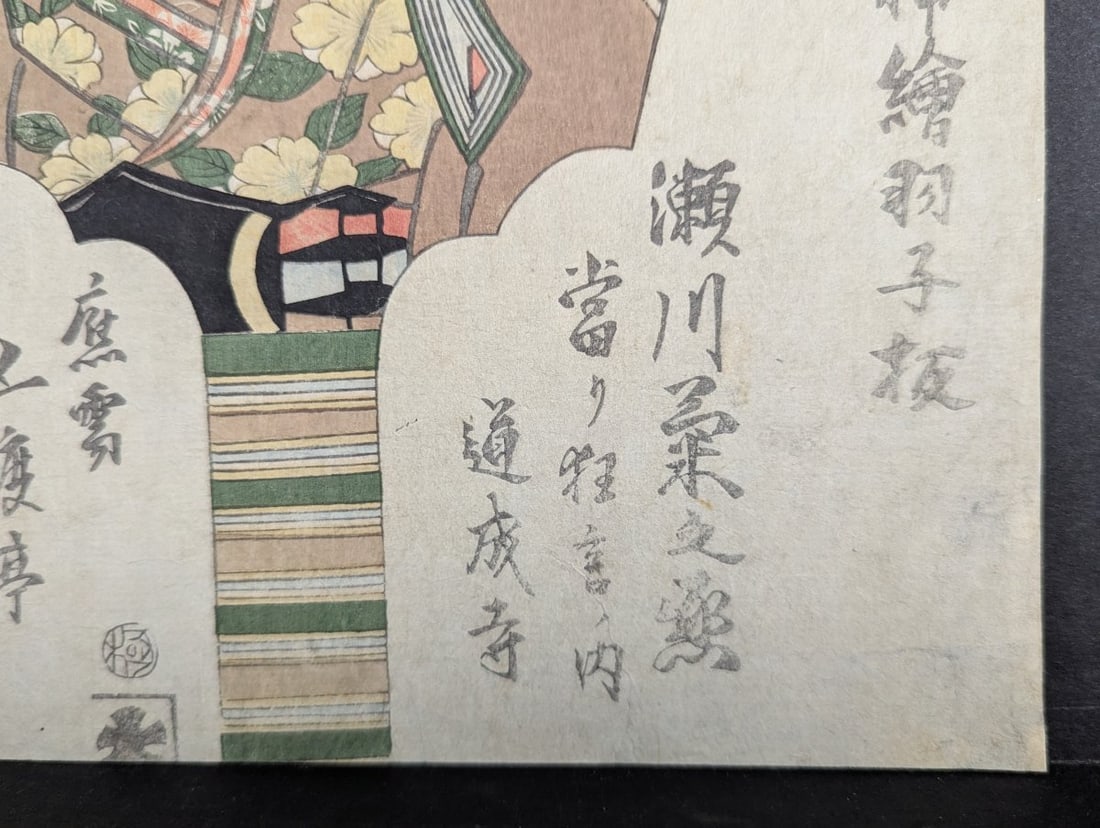 押繪羽子板
瀬川菊之丞
當り狂言ノ内
道成寺
應需
五渡亭
極